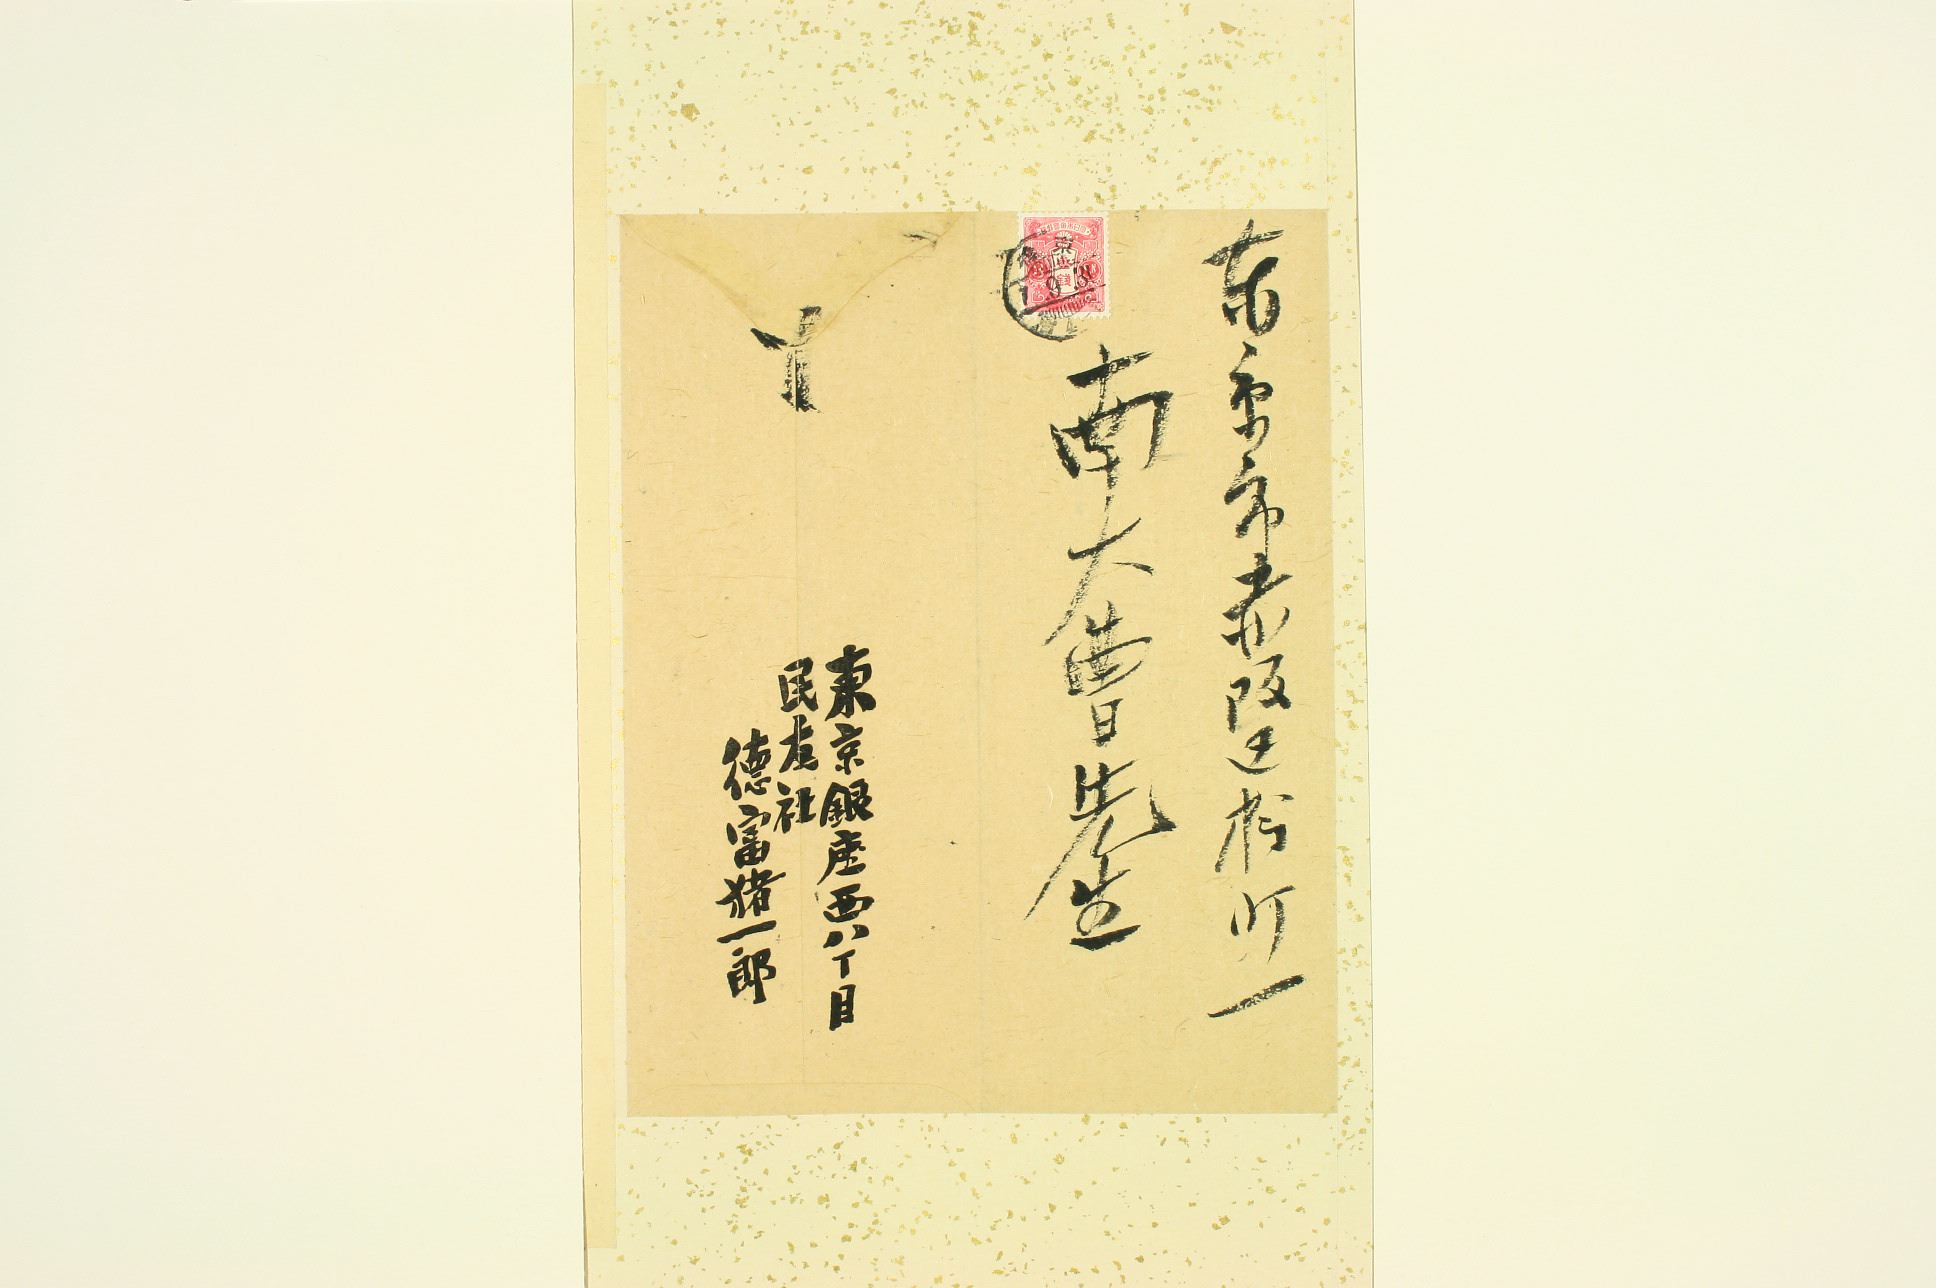 東京市赤阪区桧町一
南大曹先生
東京銀座西八丁目
民友社
徳富猪一郎